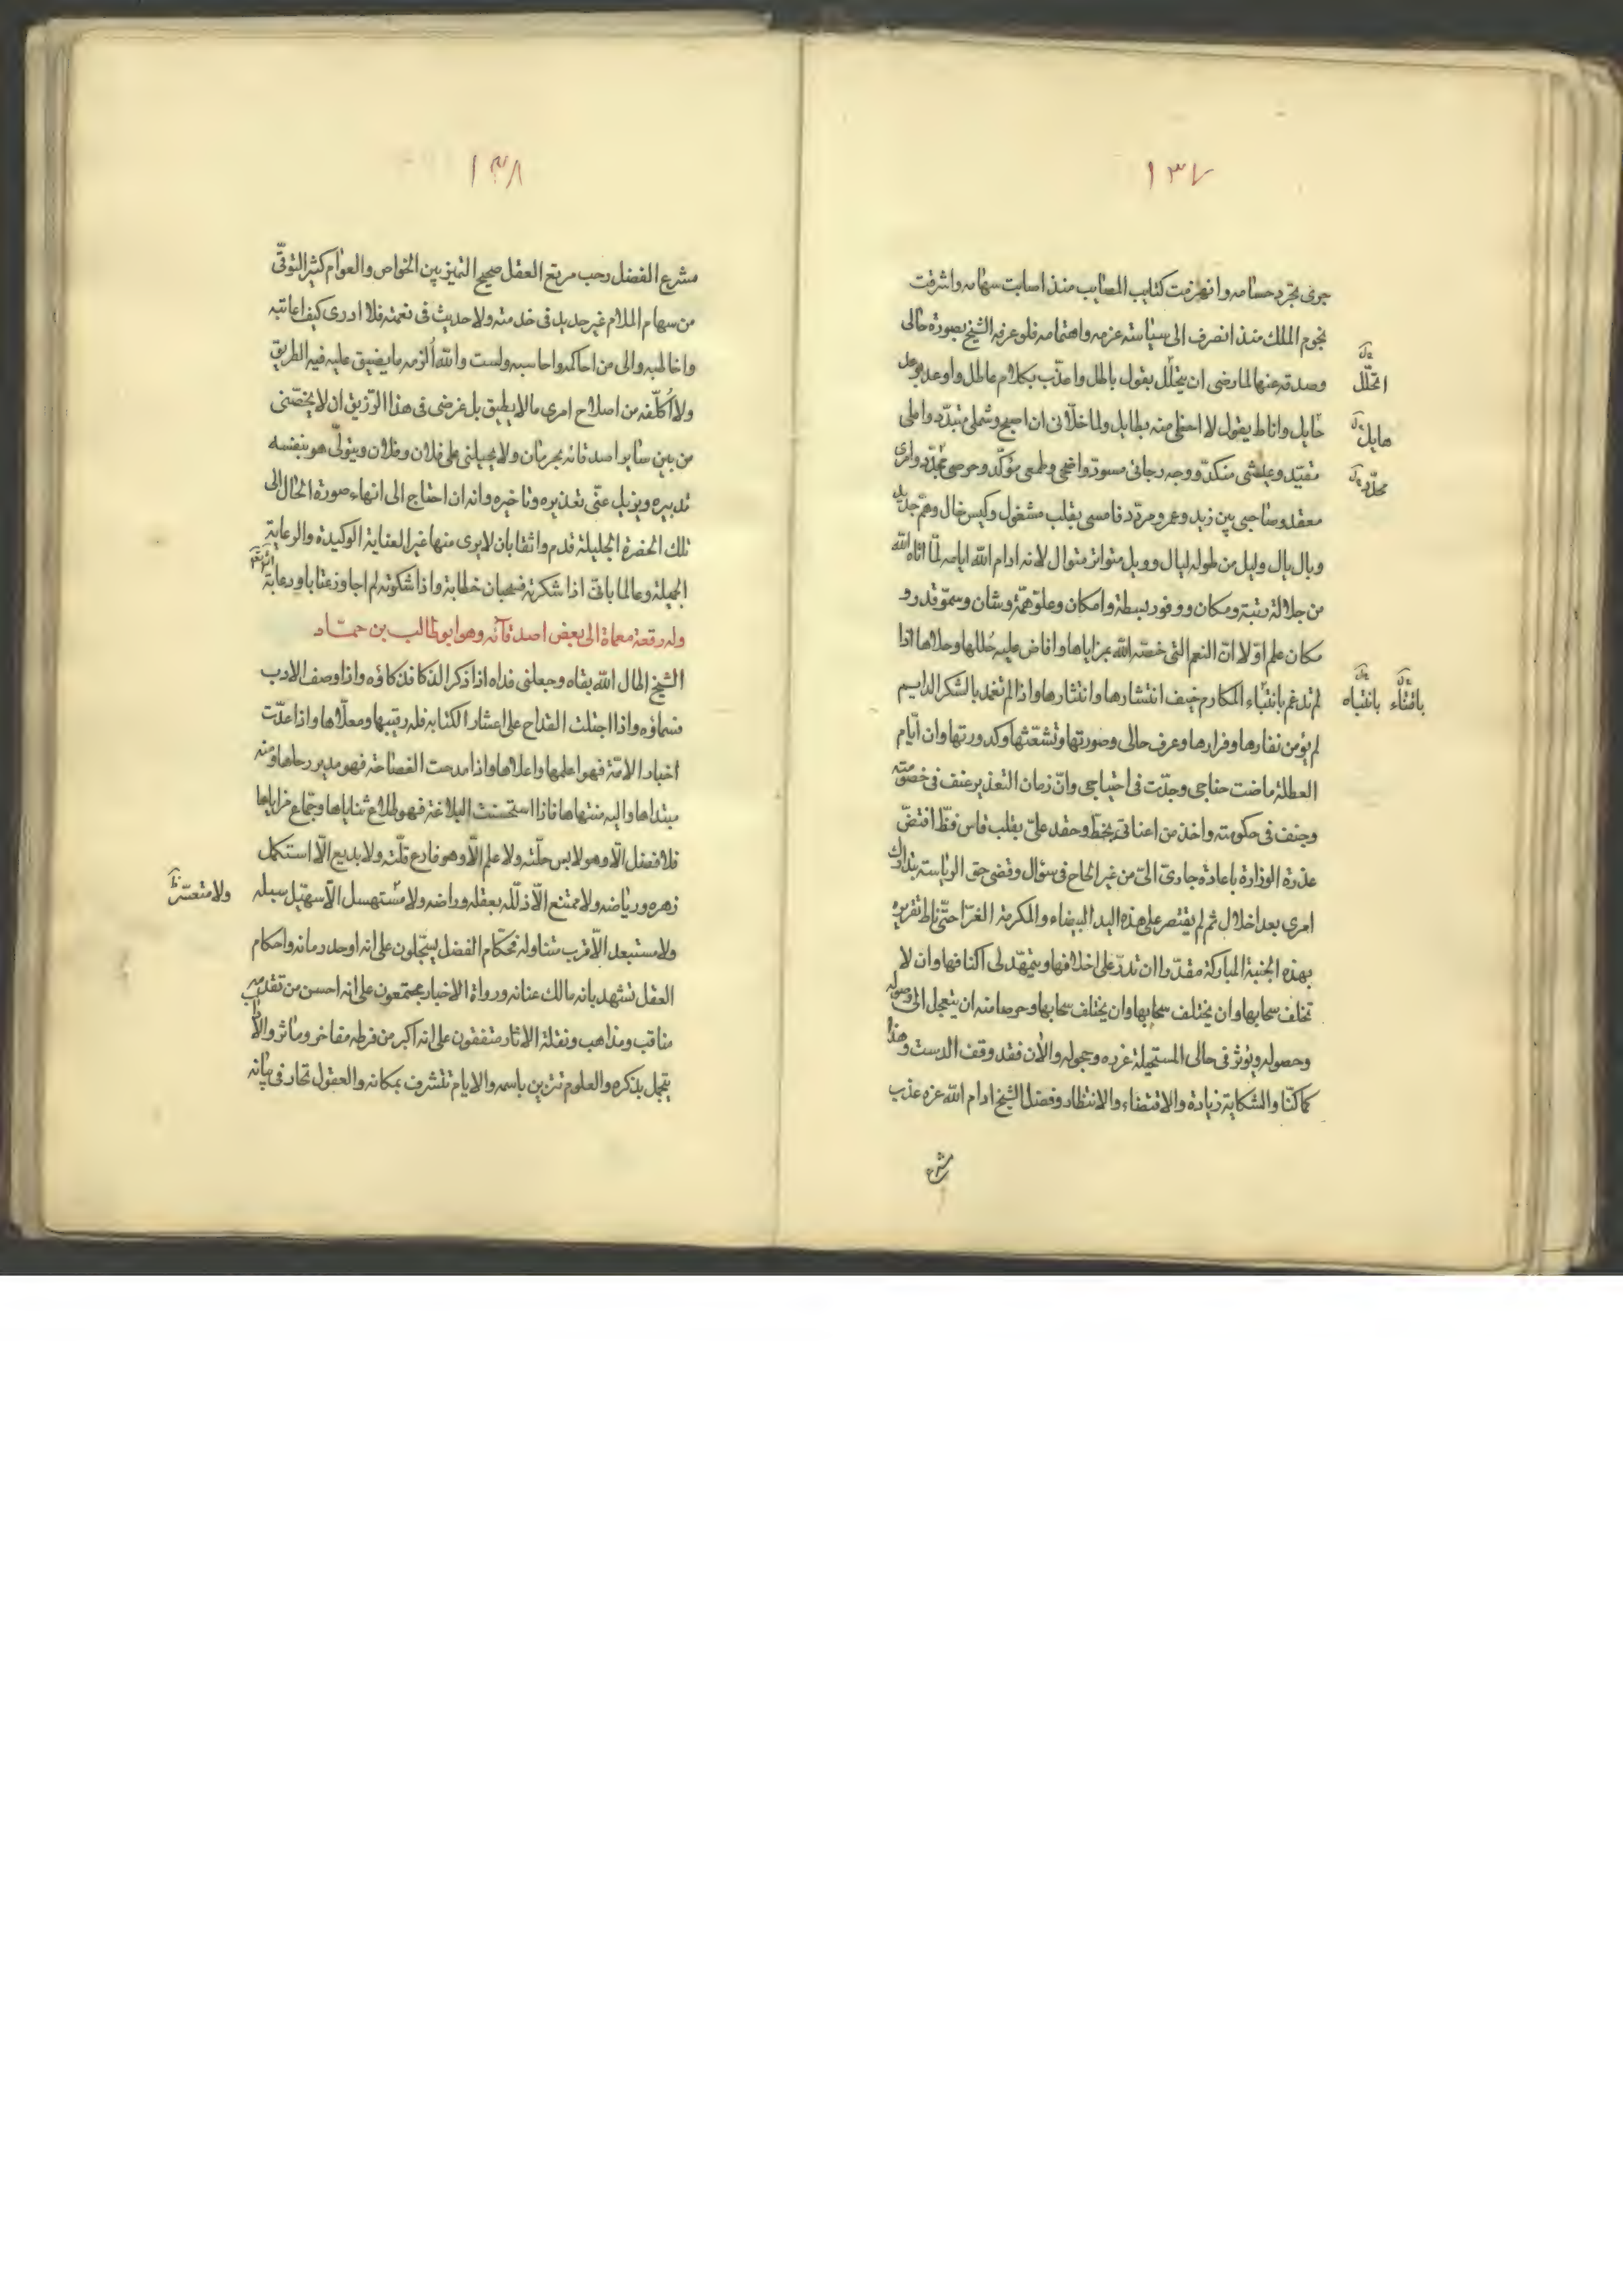 ١٣٧
جرى مجرد حسامه وانهزمت كتايب المصايب منذ اصابت سهامه واشرقت
نجوم الملك منذ انصرف الى سياسته عزمه واهتمامه فلو عرفه الشيخ بصورة حالى
وصدقه عنها لما رضى ان يحلل بقول باطل واعذب بكلام عاطل واوعد بوعد
حايل واناط بقول لا احظى منه بطايل ولما خلانى ان اصبح وشملى متبدد واملى
مقيد وعيشى منكد ووجه رجائى مسود واضحى وطمعى مؤكد وحرصى مجدد وامرى
معقد وصاحبى بين زيد وعمرو مردد فامسى بقلب مشغول وكيس خال وهم جديد
وبال بال وليل من طوله ليال وويل متواتر متوال لانه ادام الله ايامه لما اتاه الله
من جلالة رتبة ومكان ووفور بسطة وامكان وعلو همة وشان وسمو قدر و
مكان علم اولا ان النعم التى خصه الله بمزاياها وافاض عليه حللها وحلاها اذا
لم تدعم بانتباء المكارم خيف انتشارها وانتثارها واذا لم تغمد بالشكر الدايم
لم يؤمن نفارها وفرارها وعرف حالى وصورتها وتشعثها وكدورتها وان ايام
العطلة ماضت جناحى وجدت فى احتياجى وان زمان التعذير عنف فى خصومته
وجنف فى حكومته واخذ من اعناقى بخط وحقد على بقلب قاس فظ افتض
عذرة الوزارة باعادة جارى الى من غير الحاح فى سؤال وقضى حق الرياسة بتدارك
امرى بعد اخلال ثم لم يقتصر على هذه اليد البيضاء والمكرمة الغرا حتى ناط تقريره
بهذه الجنبة المباركة مقدرا ان تدر على اخلافها ويتمهد لى اكنافها وان لا
تخلف سحابها وان يختلف سحابها وان يختلف سحابها وحرصا منه ان يتعجل الى وصوله
وحصوله ويؤثر فى حالى المستحيلة غرره وحجوله والان فقد وقف الدست وهذا
كما كنا والشكاية زيادة والاقتضاء والانتظار وفضل الشيخ ادام الله عزه عذب
اتحلل
هايل
محدد
بافتناء بانتباه
١٣٨
مشرع الفضل رحب مربع العقل صحيح التميز بين الخواص والعوام كثير التوقى
من سهام الملام غير جديد فى خدمته ولا حديث فى نعمته فلا ادرى كيف اعاتبه
واخاطبه والى من احاكمه واحاسبه ولست والله الزمه ما يضيق عليه فيه الطريق
ولا اكلفه من اصلاح امرى ما لا يطيق بل غرضى فى هذا الرزيق ان لا يخصنى
من بين ساير اصدقائه بحرمان ولا يحيلنى على فلان وفلان ويتولى هو بنفسه
تدبيره ويزيل عنى تعذيره وتاخيره وانه ان احتاج الى انهاء صورة الحال الى
تلك الحضرة الجليلة قدم واثقا بان لا يرى منها غير العناية الوكيدة والرعاية
الجميلة وعالما باننى اذا شكرته فسحبان خطابة واذا شكوته لم اجاوز عتابا ورعاية
وله رقعة معماة الى بعض اصدقائه وهو ابو طالب بن حماد
الشيخ اطال الله بقاه وجعلنى فداه اذا ذكر الذكا فذكاؤه واذا وصف الادب
فسماؤه واذا اجتلت القداح على اعشار الكتابه فله رقيبها ومعلاها واذا عدت
اخبار الامة فهو اعلمها واعلاها واذا مدحت الفصاحة فهو مدير رحاها ومنه
مبتداها واليه منتهاها فاذا استحسنت البلاغة فهو طلاع ثناياها وجماع مزاياها
فلا فضل الا وهو لابس حلته ولا علم الا وهو فارع قلته ولا بديع الا استكمل
زهره ورياضه ولا ممتنع الا ذلله بعقله وراضه ولا مستهسل الا سهل سبيله
ولا مستبعد الا قرب متناوله فحكام الفضل يسجلون على انه اوحد زمانه واحكام
العقل تشهد بانه مالك عنانه ورواة الاخبار مجتمعون على انه احسن من تقدمه
مناقب ومذاهب ونقلة الاثار متفقون على انه اكبر من فرطه مفاخر وماثر والاداب
يتجمل بذكره والعلوم تتزين باسمه والايام تتشرف بمكانه والعقول تحار فى بيانه
ولا متعسر